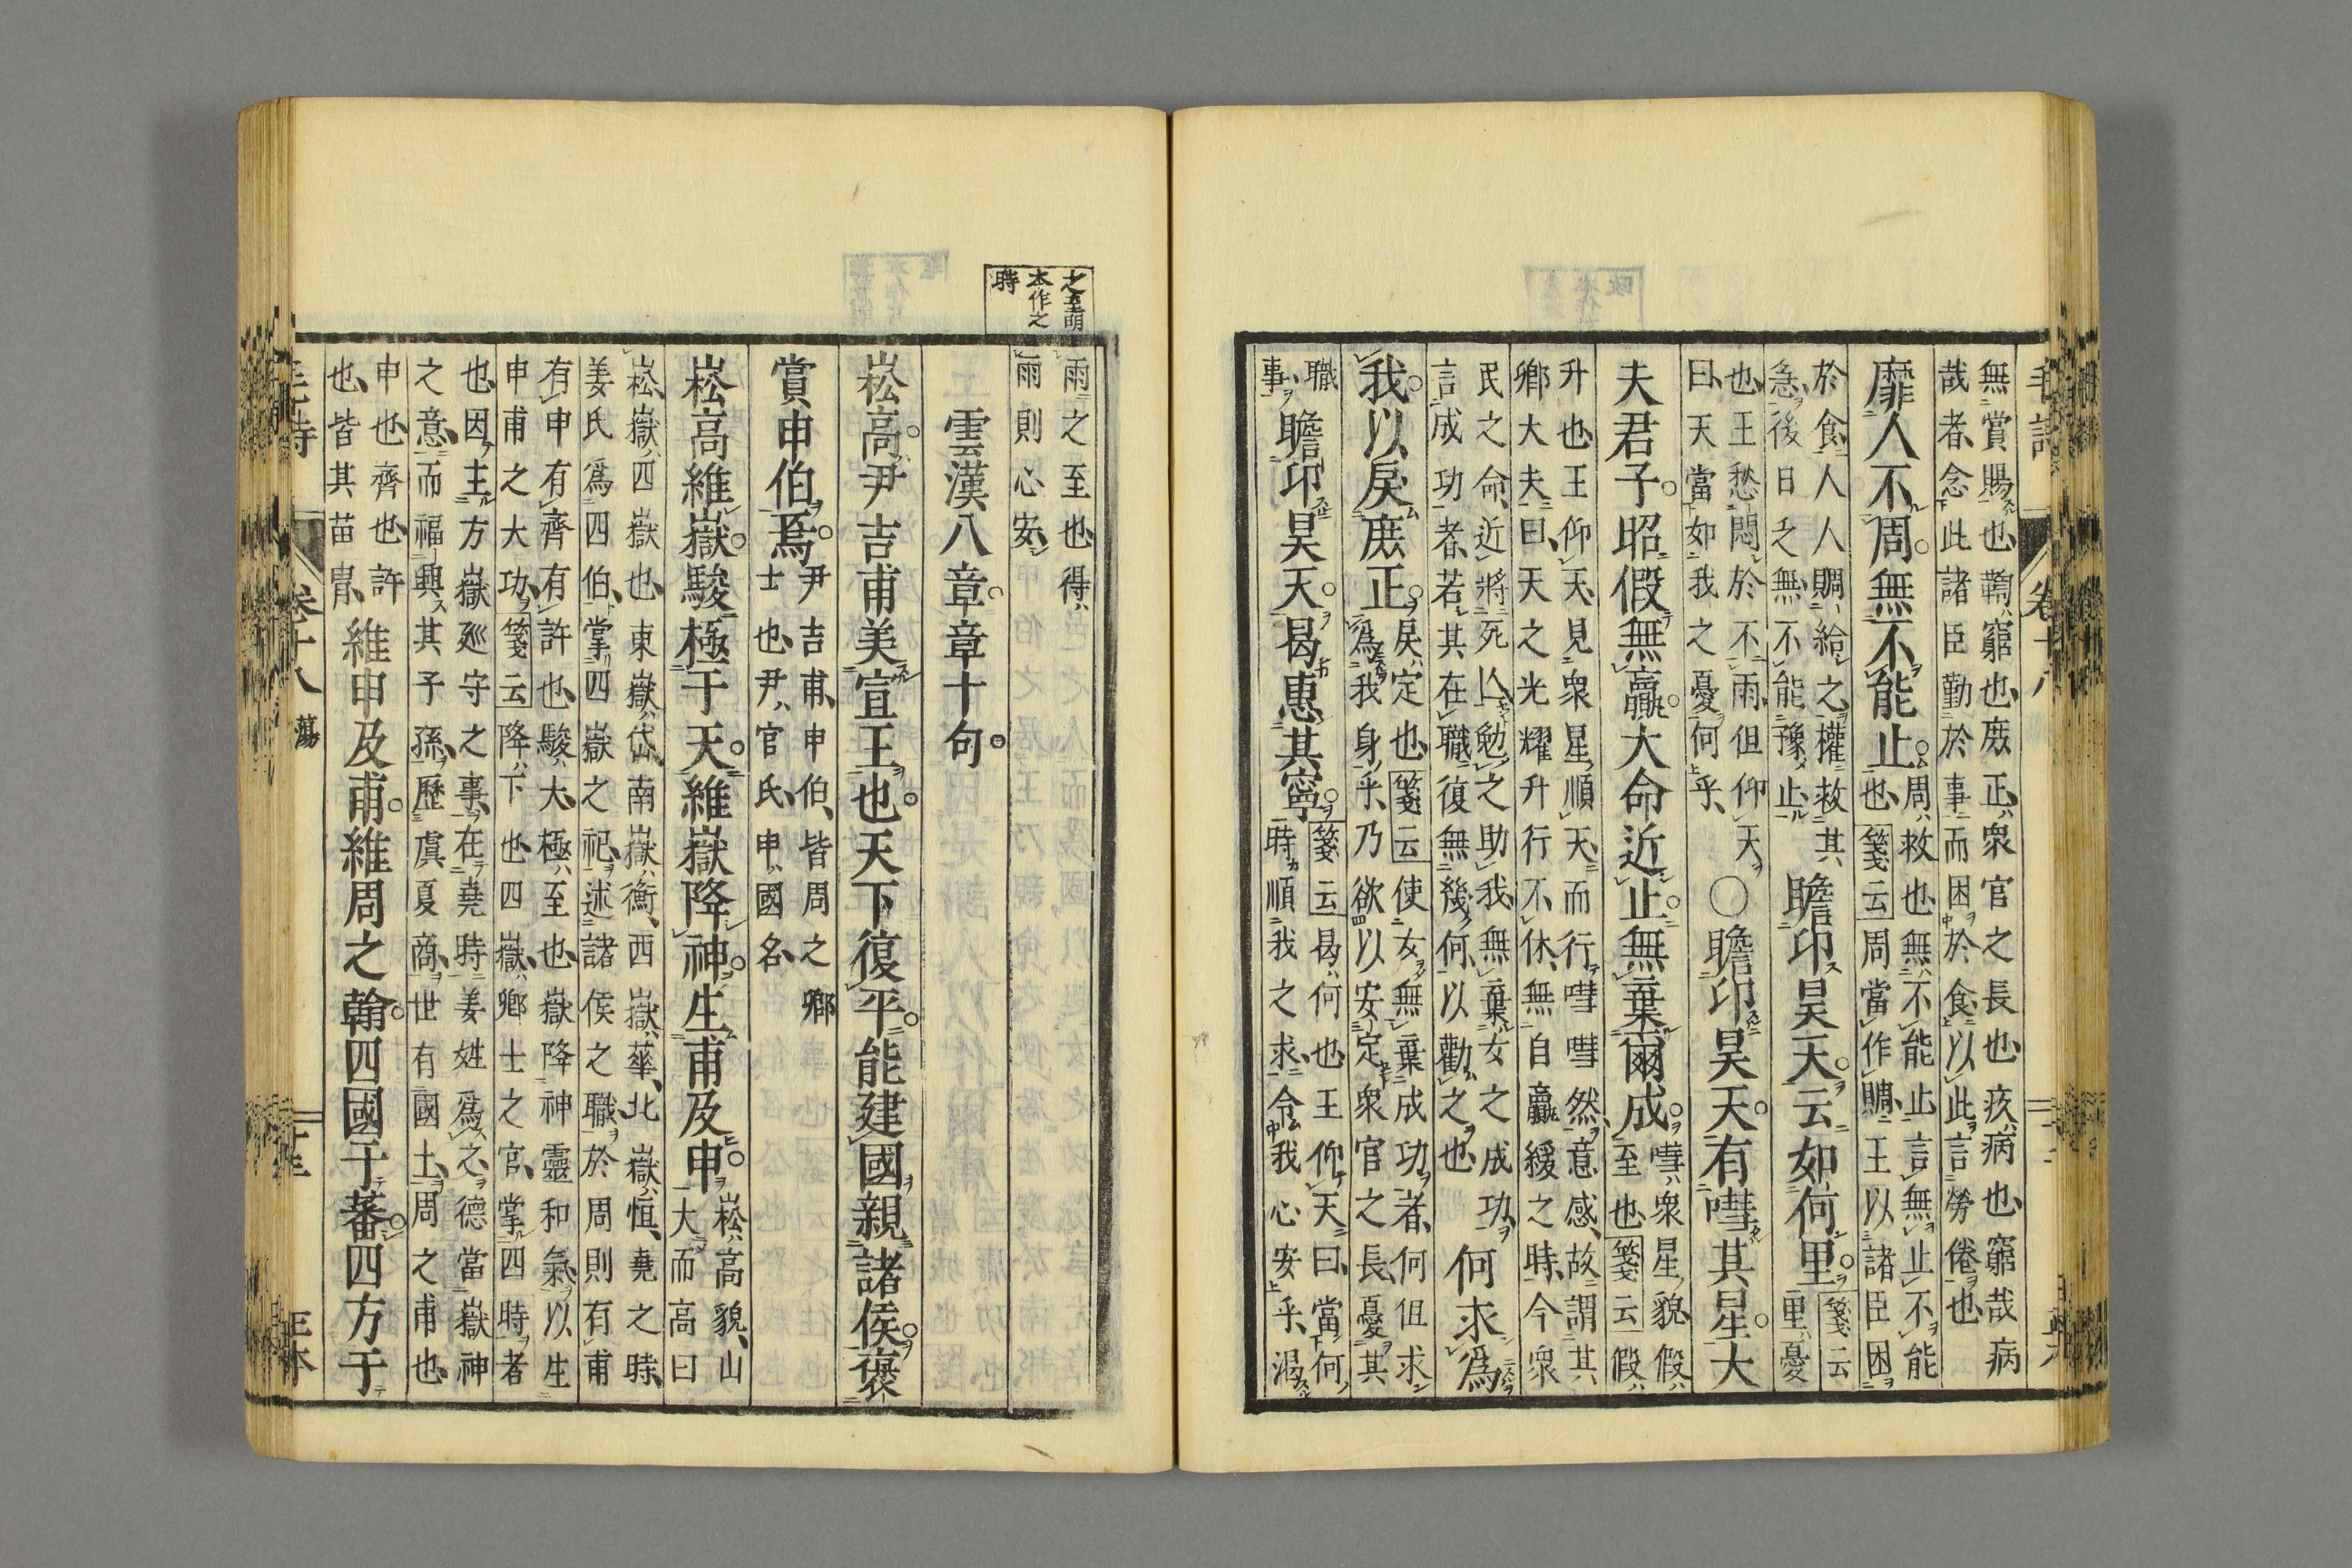 毛詩
卷十八
無賞賜也鞫窮也庶正衆官之長也疚病也窮哉病
哉者念此諸臣勤於事而困於食以此言勞倦也
靡人不周無不能止
周救也無不能止言無止不能
也箋云周當作賙王以諸臣困
於食人人賙給之權救其
急後日乏無不能豫止
瞻卬昊天云如何里
箋云
里憂
也王愁悶於不雨但仰天
曰天當如我之憂何乎
○瞻卬昊天有嘒其星大
夫君子昭假無贏大命近止無棄爾成
嘒衆星貌假
至也箋云假
升也王仰天見衆星順天而行嘒嘒然意感故謂其
卿大夫曰天之光耀升行不休無自贏緩之時今衆
民之命近將死亾勉之助我無棄女之成功
言成功者若其在職復無幾何以勸之也
何求爲
我以戾庶正
戾定也箋云使女無棄成功者何但求
爲我身乎乃欲以安定衆官之長憂其
職
事
瞻卬昊天曷惠其寧
箋云曷何也王仰天曰當何
時順我之求令我心安乎渴
之至萌
本作之
時
雨之至也得
雨則心安
雲漢八章章十句
崧高尹吉甫美宣王也天下復平能建國親諸侯褒
賞申伯焉
尹吉甫申伯皆周之卿
士也尹官氏申國名
崧高維嶽駿極于天維嶽降神生甫及申
崧高貌山
大而高曰
崧嶽四嶽也東嶽岱南嶽衡西嶽華北嶽恒堯之時
姜氏爲四伯掌四嶽之祀述諸侯之職於周則有甫
有申有齊有許也駿大極至也嶽降神靈和氣以生
申甫之大功箋云降下也四嶽卿士之官掌四時者
也因主方嶽巡守之事在堯時姜姓爲之德當嶽神
之意而福興其子孫歷虞夏商世有國土周之甫也
申也齊也許
也皆其苗胄
維申及甫維周之翰四國于蕃四方于
卷十八
蕩